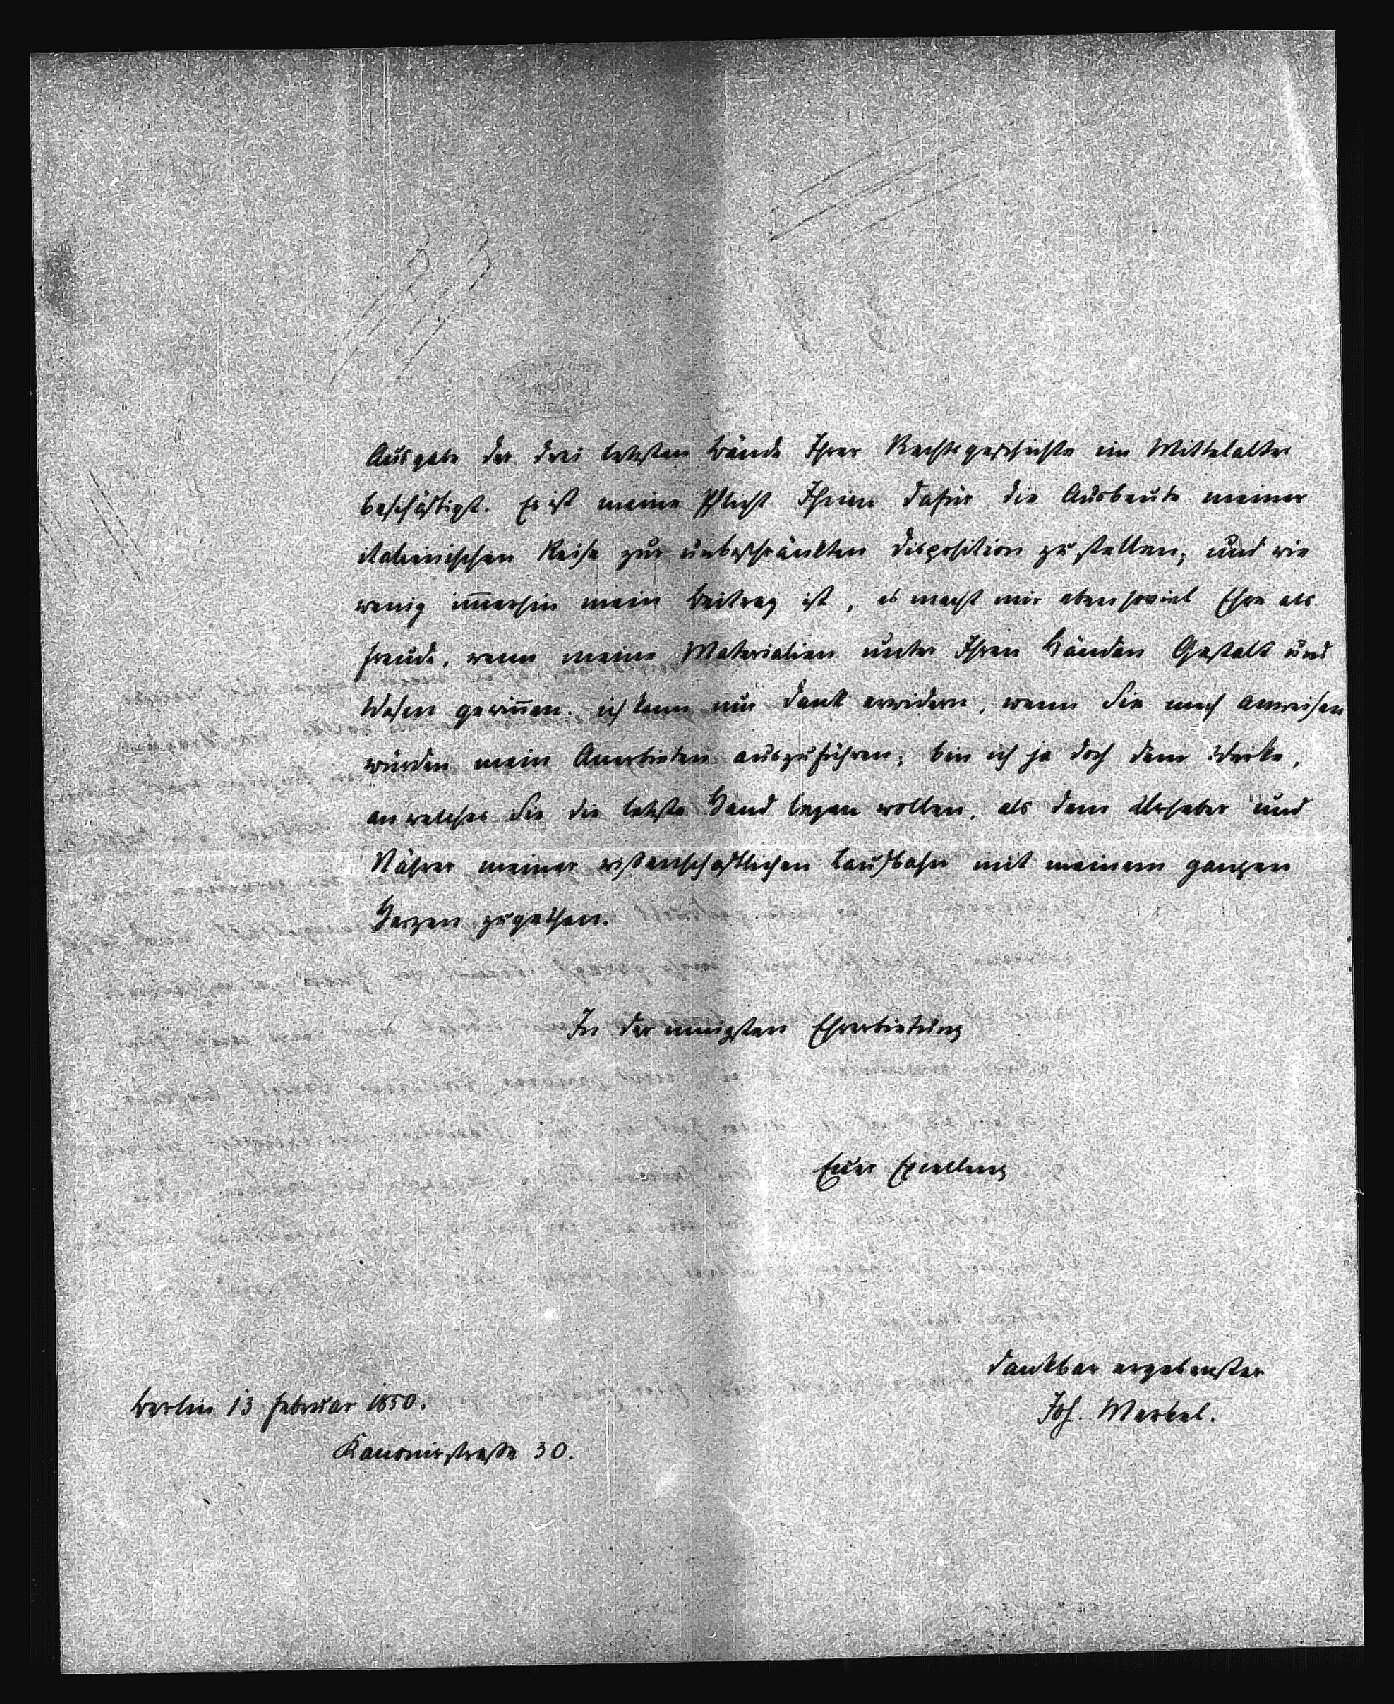 Ausgabe der drei letzten Bände Ihrer Rechtsgeschichte im Mittelalter
beschäftigt. Es ist meine Pflicht Ihnen dafür die Ausbeute meiner
italienischen Reise zur unbeschränkten Disposition zu stellen; und wie
wenig im̅erhin mein Beitrag ist, es macht mir ebensoviel Ehre als
Freude, wenn meine Materialien unter Ihren Händen Gestalt und
gewin̅en. ich kann nur Dank erwidern, wenn Sie mich anweisen
würden mein Anerbieten auszuführen; bin ich ja doch dem Werke,
an welches Sie die letzte Hand legen wollen, als dem Urheber und
Nährer meiner wissenschaftlichen Laufbahn mit meinem ganzen
Herzen zugethan.
In der innigsten Ehrerbietung
Euer Excellenz
dankbar ergebenster
Joh. Merkel.
Berlin 13 Februar 1850.
Kanonirstraße 30.